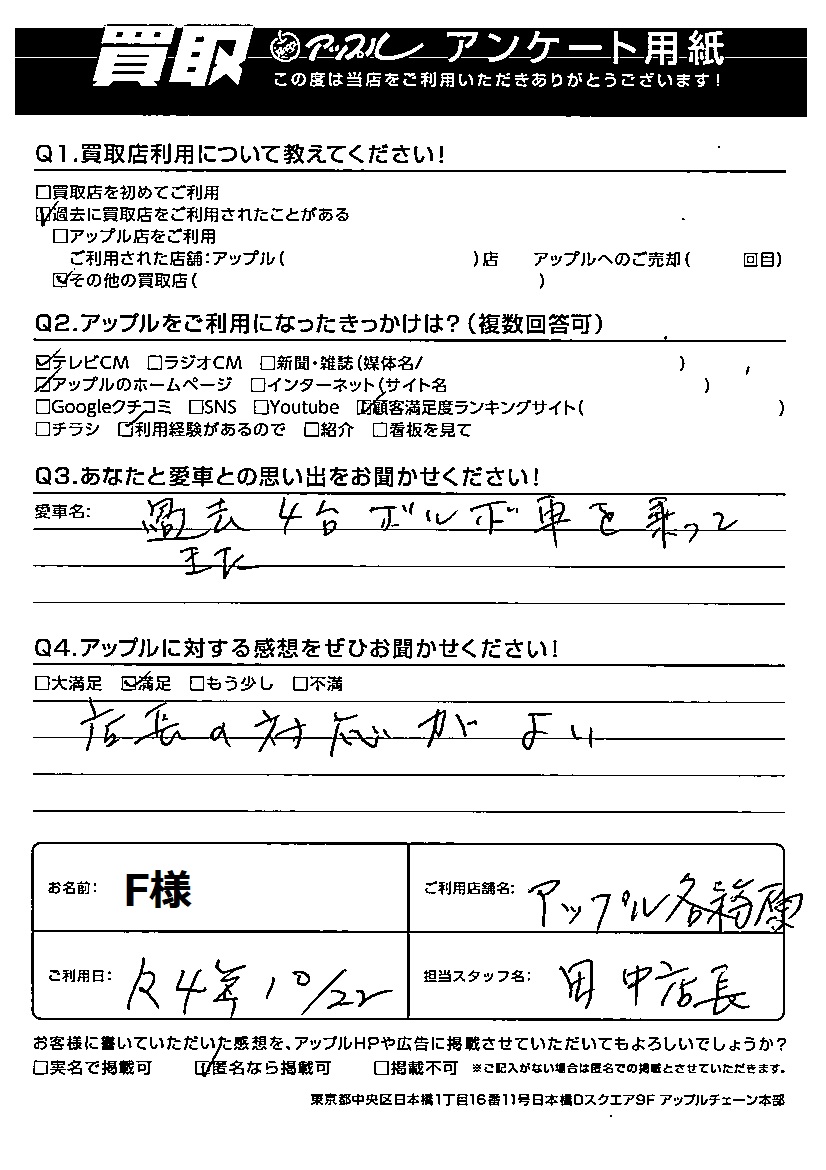 買取 アップル アンケート用紙
この度は当店をご利用いただきありがとうございます!
Q1.買取店利用について教えてください!
□買取店を初めてご利用
☑過去に買取店をご利用されたことがある
□アップル店をご利用
ご利用された店舗:アップル( )店 アップルへのご売却( 回目)
☑その他の買取店( )
Q2.アップルをご利用になったきっかけは?(複数回答可)
☑テレビCM □ラジオCM □新聞・雑誌(媒体名/ )
☑アップルのホームページ □インターネット(サイト名 )
□Googleクチコミ □SNS □Youtube ☑顧客満足度ランキングサイト( )
□チラシ ☑利用経験があるので □紹介 □看板を見て
Q3.あなたと愛車との思い出をお聞かせください!
愛車名: 過去 4台 ボルボ車を乗って
ました
Q4.アップルに対する感想をぜひお聞かせください!
□大満足 ☑満足 □もう少し □不満
店長の対応がよい
お名前: F様 ご利用店舗名: アップル各務原
ご利用日: R4年10/22 担当スタッフ名: 田中店長
お客様に書いていただいた感想を、アップルHPや広告に掲載させていただいてもよろしいでしょうか?
□実名で掲載可 ☑匿名なら掲載可 □掲載不可 ※ご記入がない場合は匿名での掲載とさせていただきます。
東京都中央区日本橋1丁目16番11号日本橋Dスクエア9F アップルチェーン本部